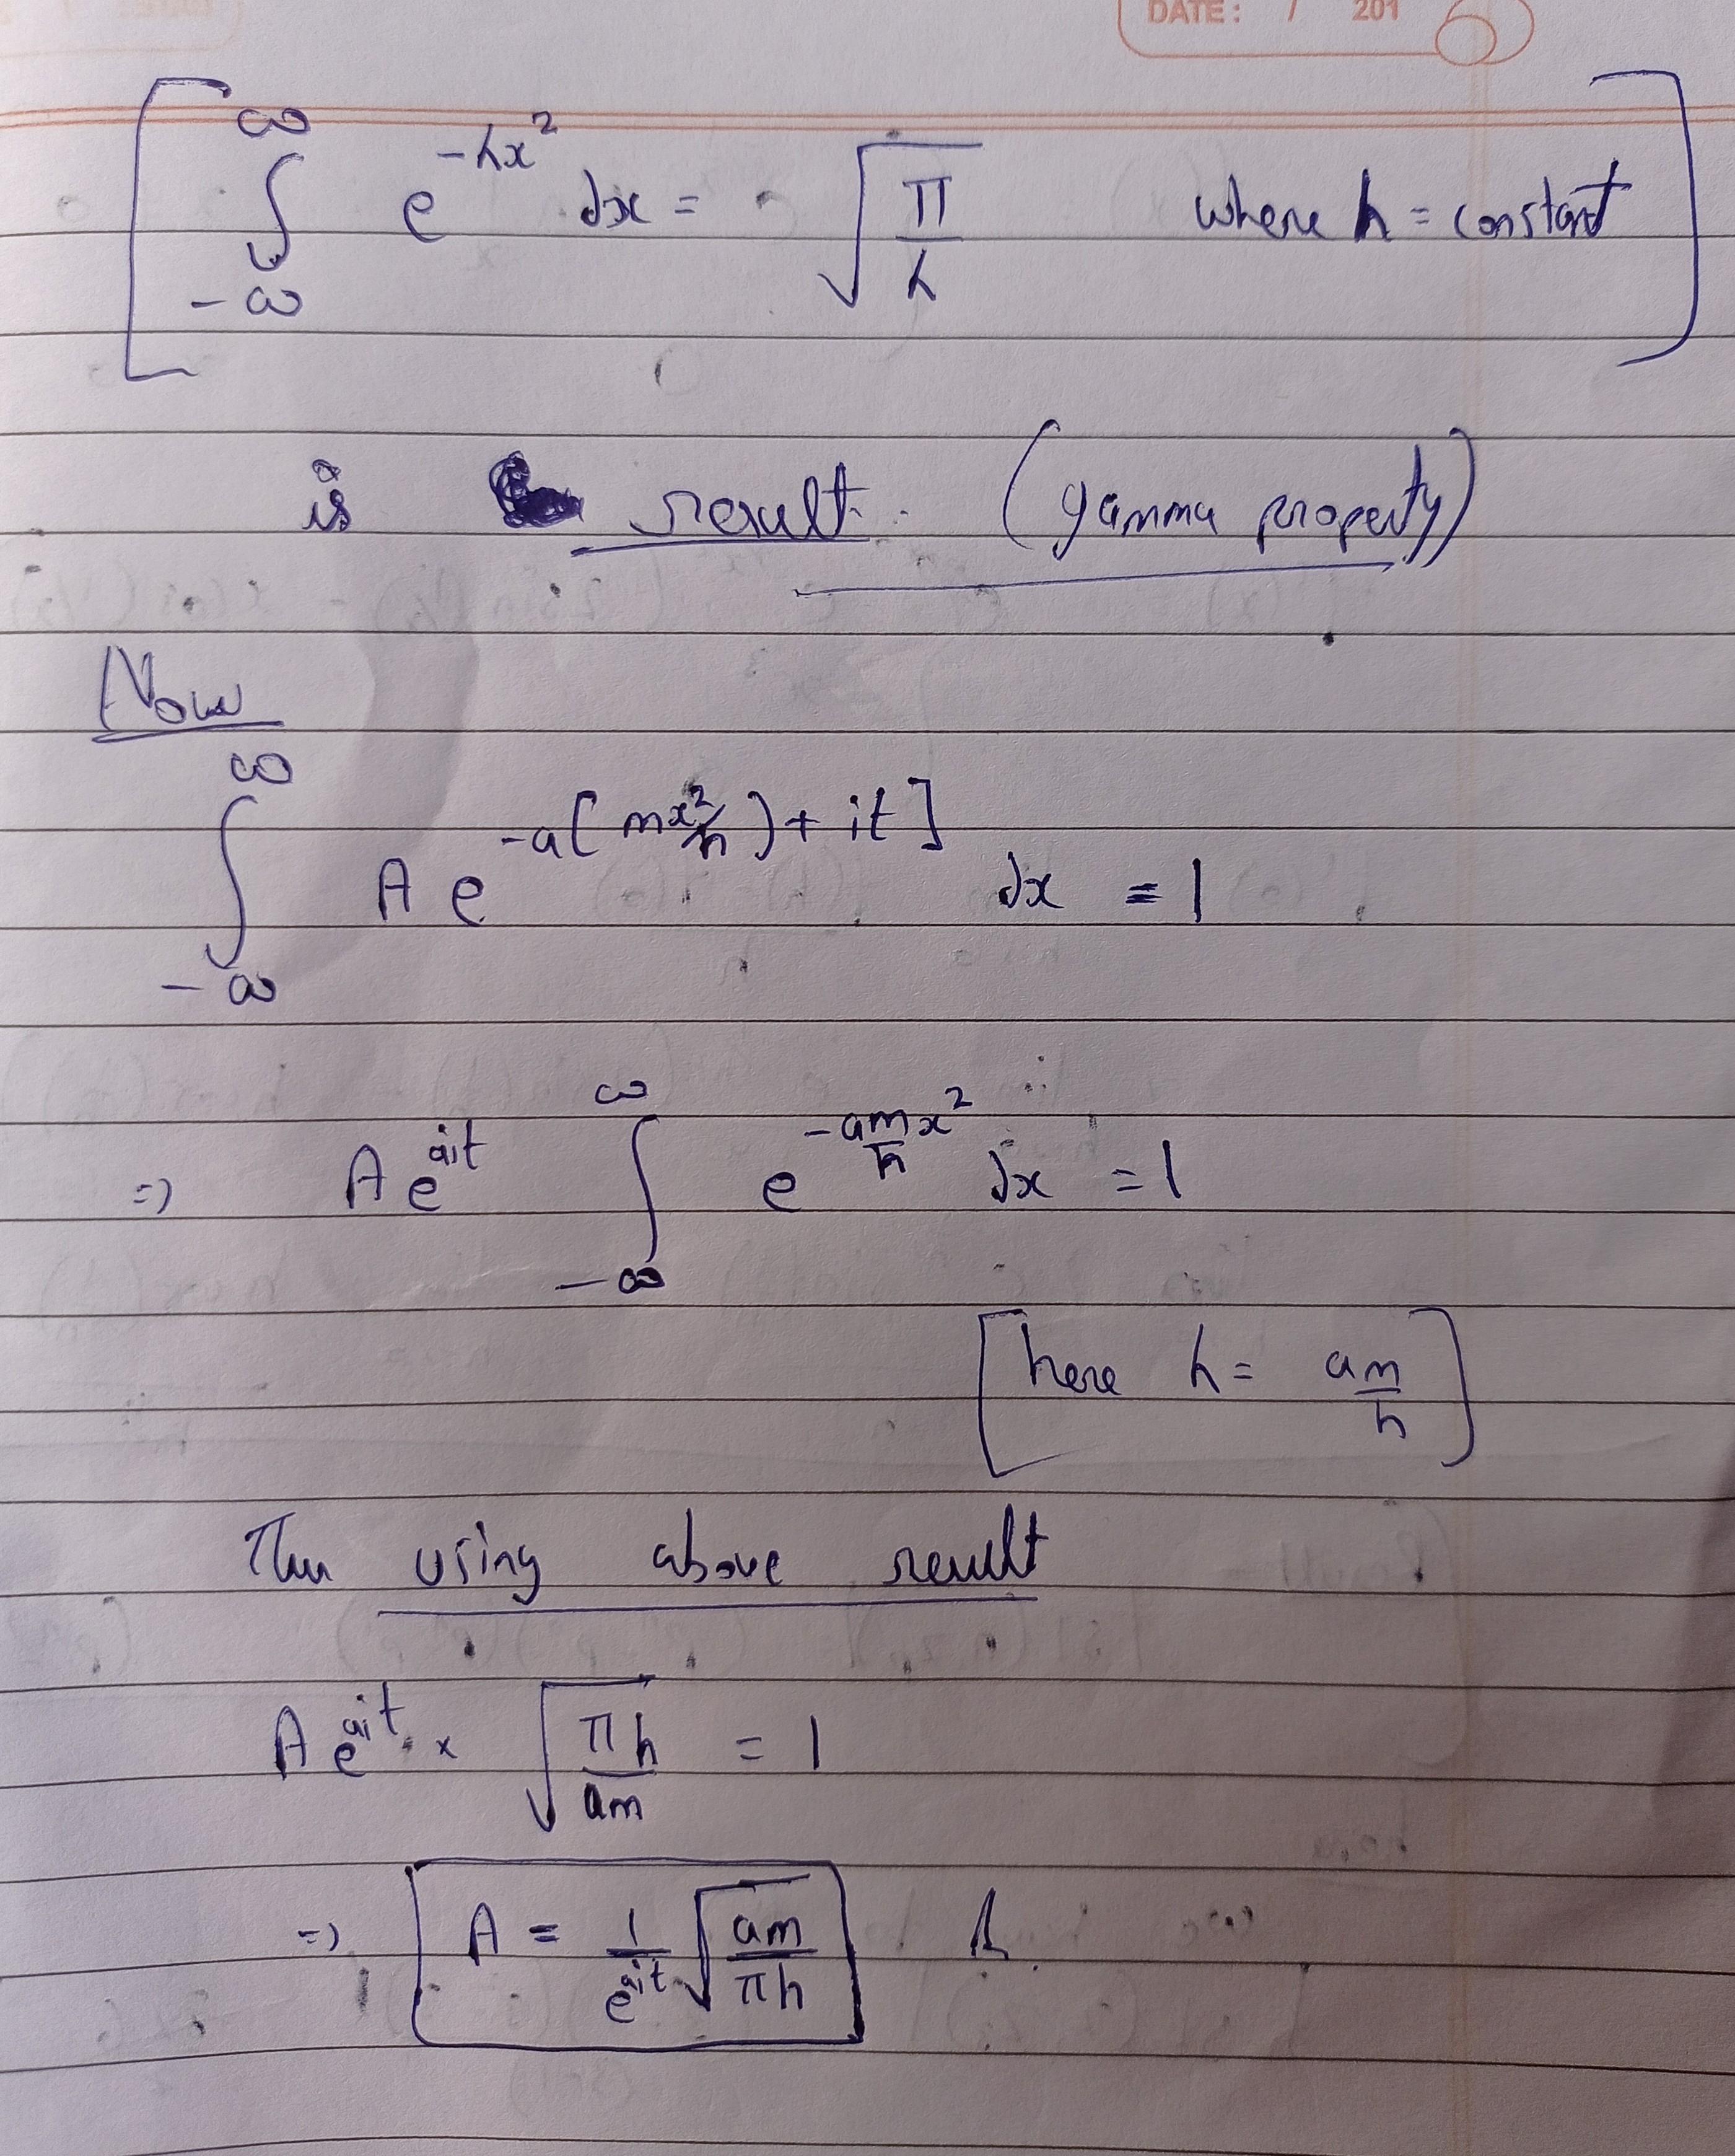 DATE: / 201
[ ∫_{-∞}^{∞} e^{-hx²} dx = √(π/h) where h = constant ]
is result. (gamma property)
Now
∫_{-∞}^{∞} A e^{-a[mx²/ħ)+it]} dx = 1
=) A e^{ait} ∫_{-∞}^{∞} e^{-am/ħ x²} dx = 1
[here h = am/ħ]
Then using above result
A e^{ait} × √(πħ/am) = 1
=) A = 1/e^{ait} √(am/πħ)